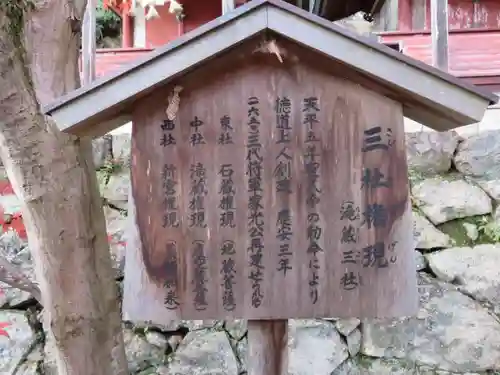 三社権現
(滝蔵三社)
天平五年聖武帝の勅命により
徳道上人創建 慶安三年
一六五〇三代将軍家光公再建せらる
東社 石蔵権現(地蔵菩薩)
中社 滝蔵権現
西社 新宮権現(薬師如来)